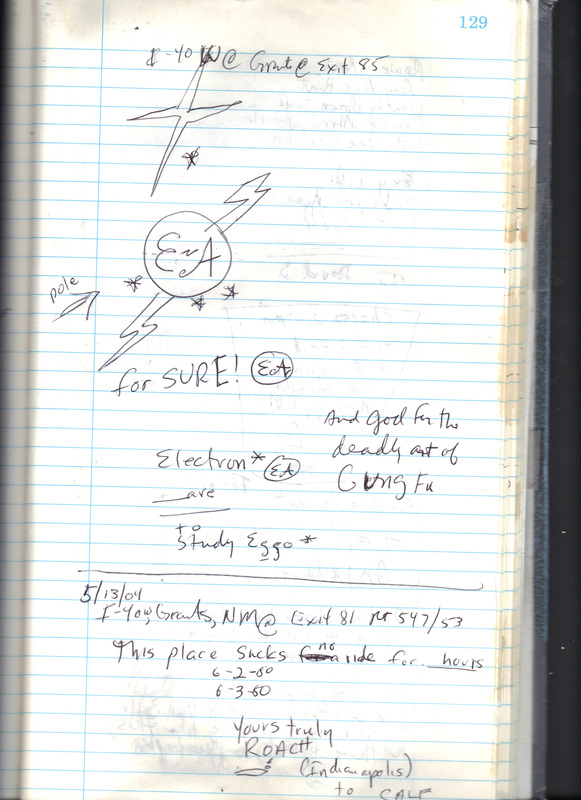 129
I-40 W@ Grants@ Exit 85
EA
pole
for SURE! EA
And God for the
deadly art of
Gung Fu
Electron* EA
are
to
Study Eggo *
5/13/04
I-40W, Grants, NM@ Exit 81 547/53
This place sucks no ride for hours
6-2-00
6-3-00
Yours truly
ROACH
(Indianapolis)
to CALF